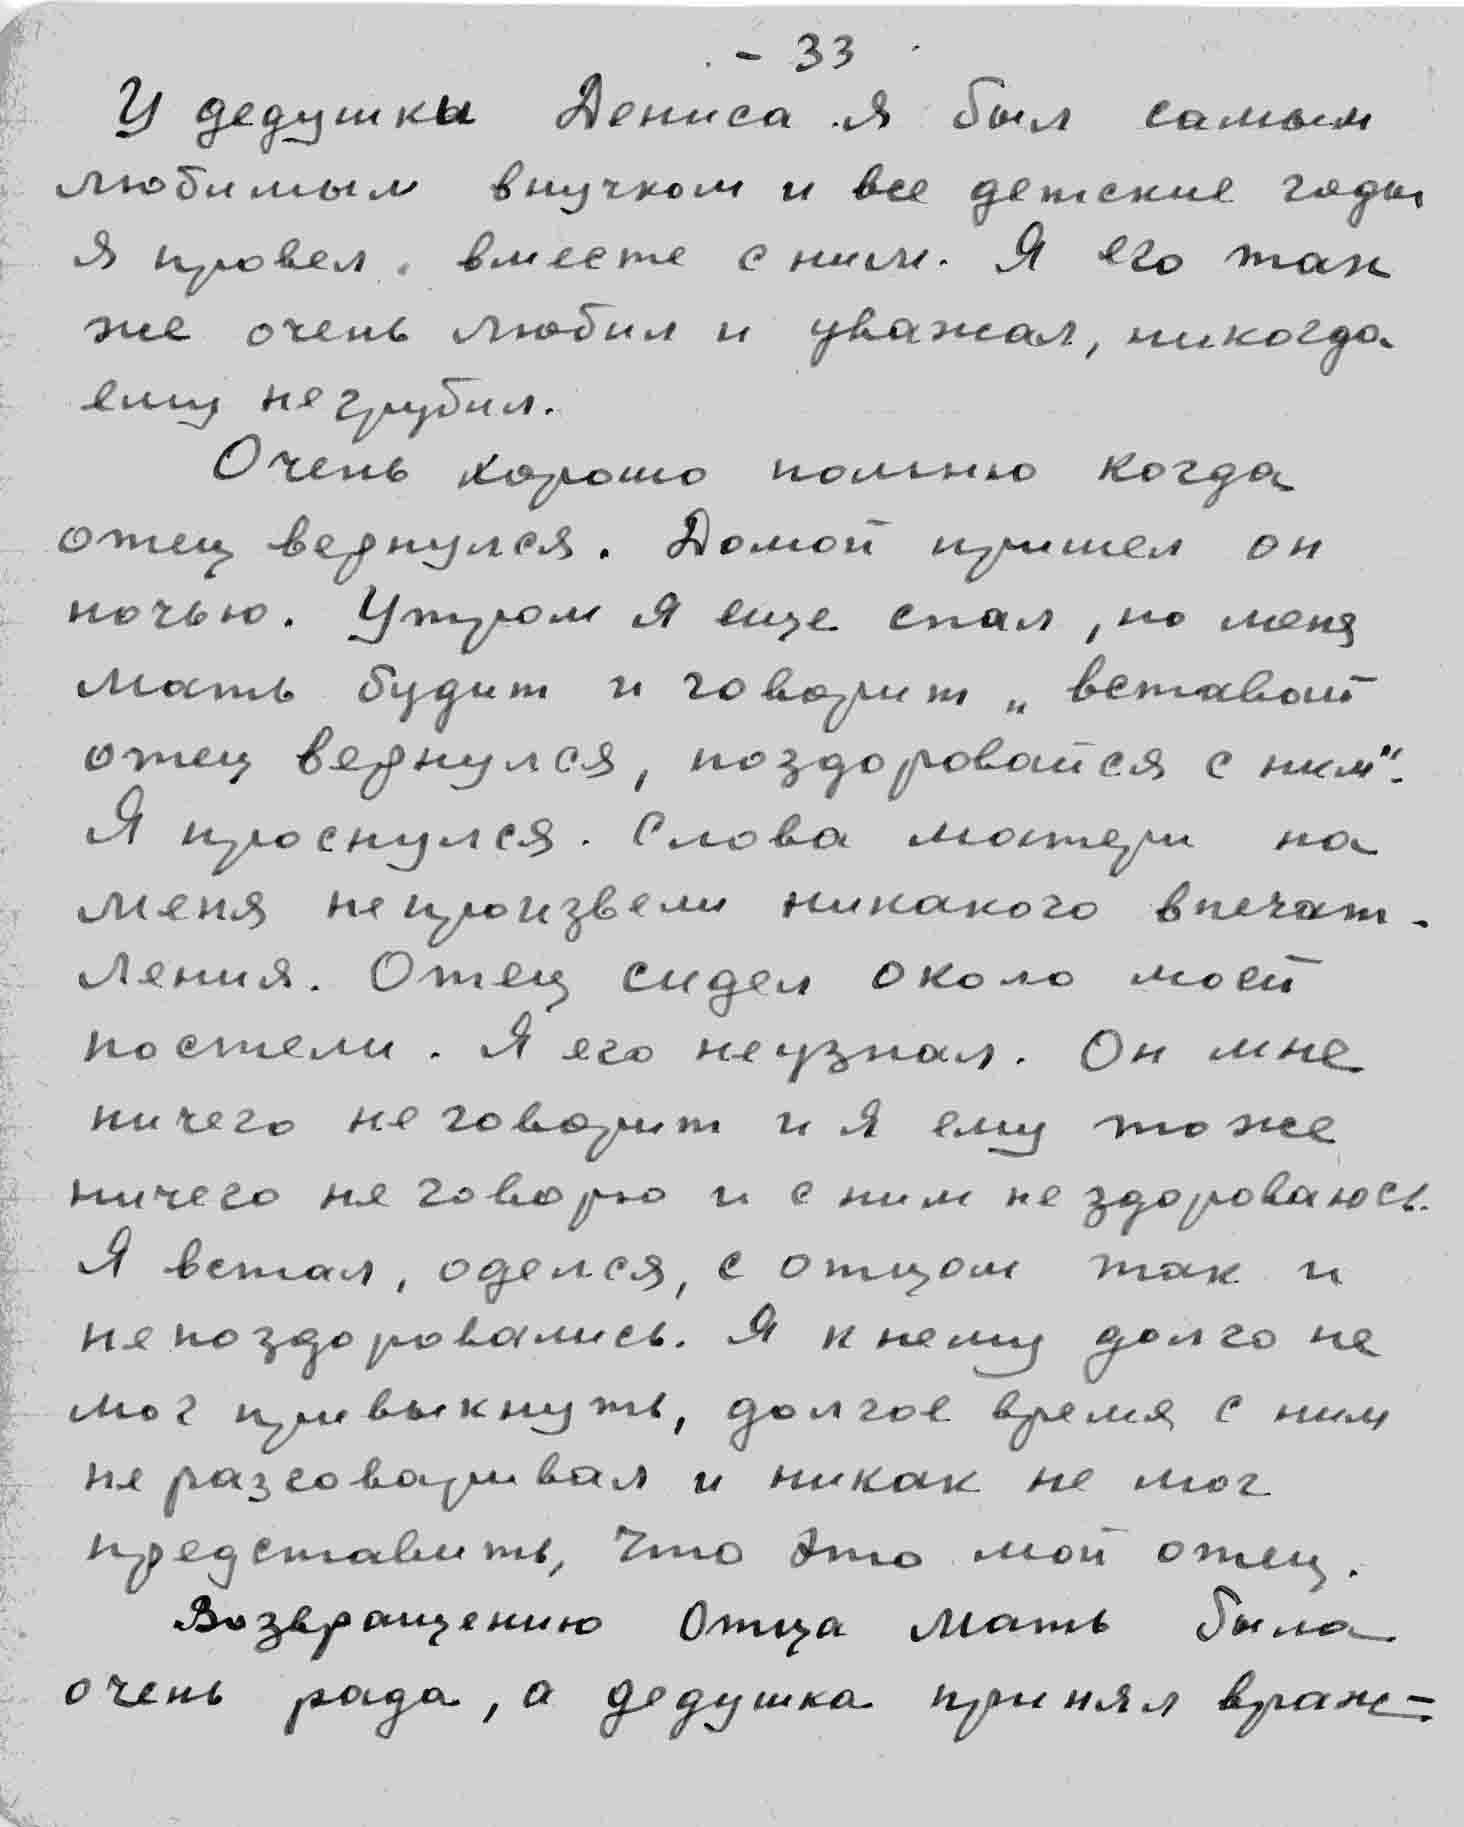 - 33
У дедушки Дениса я был самым
любимым внучком и все детские годы
я провел вместе с ним. Я его так
же очень любил и уважал, никогда
ему не грубил.
Очень хорошо помню когда
отец вернулся. Домой пришел он
ночью. Утром я еще спал, но меня
мать будит и говорит „вставай
отец вернулся, поздоровайся с ним“.
Я проснулся. Слова матери на
меня непроизвели никакого впечат-
ления. Отец сидел около моей
постели. Я его неузнал. Он мне
ничего не говорит и я ему тоже
ничего не говорю и с ним не здороваюсь.
Я встал, оделся, с отцом так и
непоздоровались. Я к нему долго не
мог привыкнуть, долгое время с ним
не разговаривал и никак не мог
представить, что это мой отец.
Возвращению отца мать была
очень рада, а дедушка принял враж-